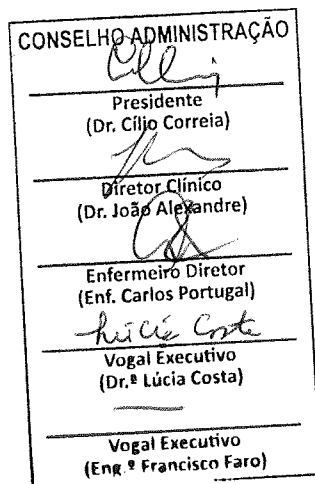 CONSELHO ADMINISTRAÇÃO
Presidente
(Dr. Cílio Correia)
Diretor Clínico
(Dr. João Alexandre)
Enfermeiro Diretor
(Enf. Carlos Portugal)
Lúcia Costa
Vogal Executivo
(Dr.ª Lúcia Costa)
Vogal Executivo
(Eng.º Francisco Faro)